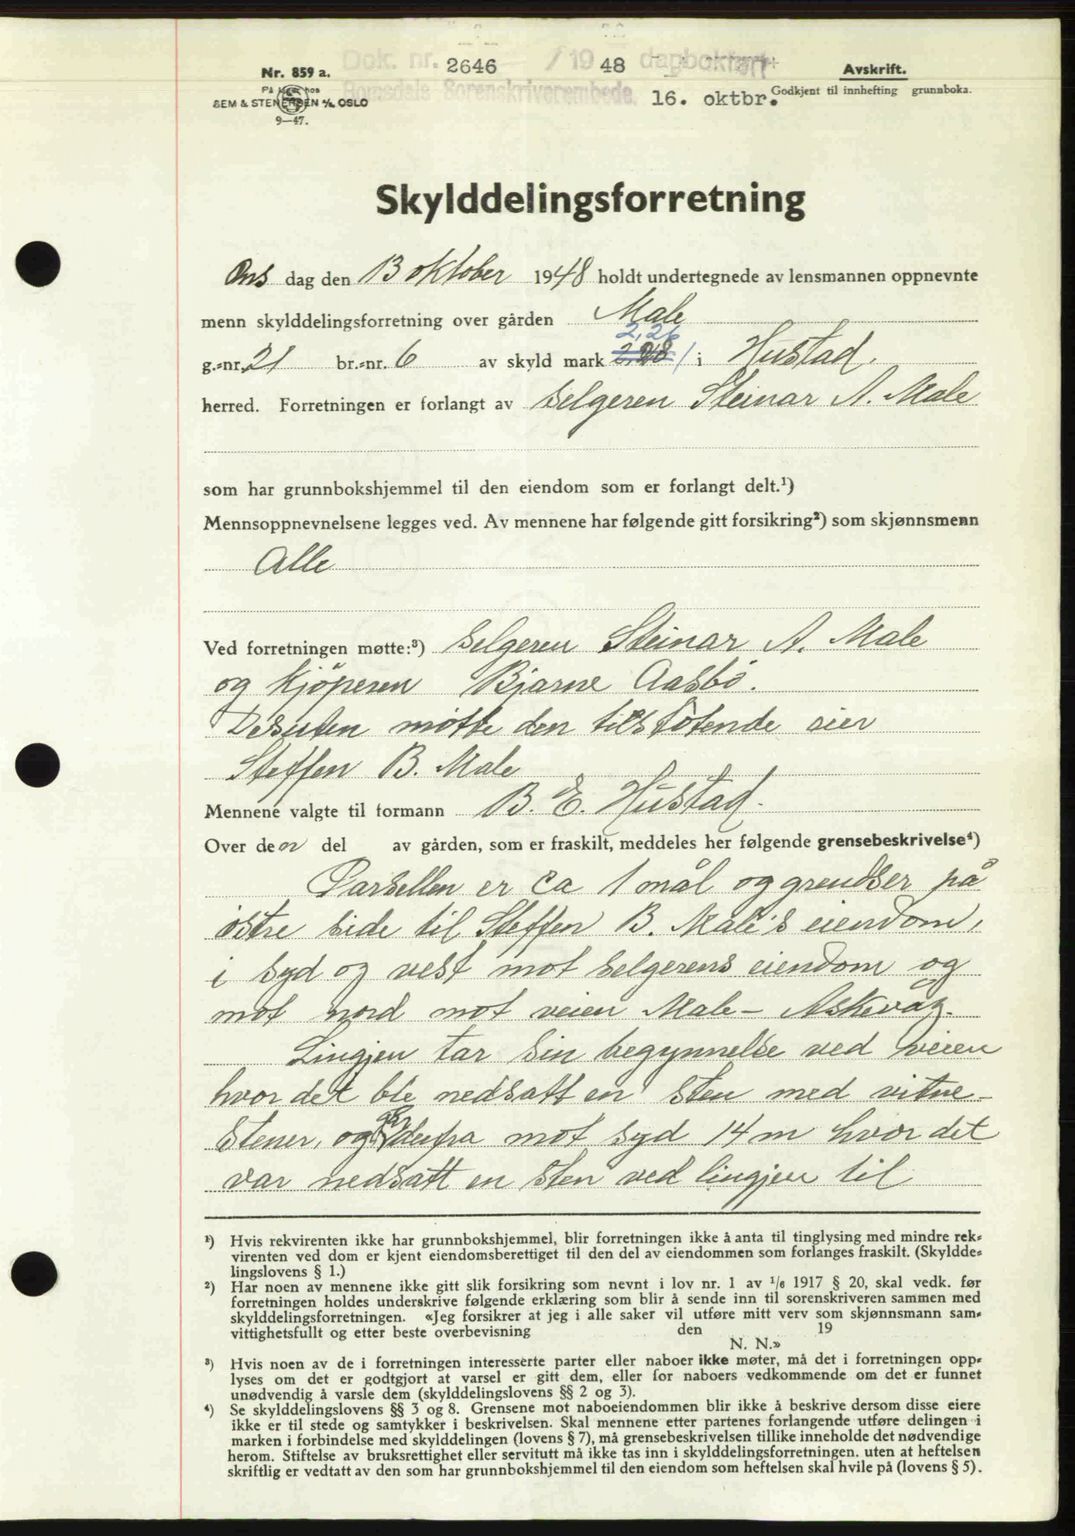 Dok. nr. 2646 / 19 48 dagbokført
Nr. 859 a.
Avskrift.
Romsdals Sorenskriverembede. 16. oktbr.
Godkjent til innhefting grunnboka.
SEM & STENERSEN A/S OSLO
9—47.
Skylddelingsforretning
Ons dag den 13 oktober 1948 holdt undertegnede av lensmannen oppnevnte
menn skylddelingsforretning over gården Male
2,26
g.-nr. 21 br.-nr. 6 av skyld mark i Hustad.
herred. Forretningen er forlangt av selgeren Steinar A. Male
som har grunnbokshjemmel til den eiendom som er forlangt delt.¹)
Mennsoppnevnelsene legges ved. Av mennene har følgende gitt forsikring²) som skjønnsmenn
Alle
Ved forretningen møtte:³) selgeren Steinar A. Male
og kjöperen Bjarne Aasbö.
Desuten møtte den tilstötende eier
Steffen B. Male
Mennene valgte til formann B. E. Hustad.
Over den del av gården, som er fraskilt, meddeles her følgende grensebeskrivelse⁴)
Parsellen er ca 1 mål og grendser på
östre side til Steffen B. Male's eiendom,
i syd og vest mot selgerens eiendom og
mot nord mot veien Male – Askevåg.
Lingjen tar sin begynnelse ved veien
hvor det ble nedsatt en sten med vitne-
stener, og derfra mot syd 14 m hvor det
var nedsatt en sten ved lingjen til
¹) Hvis rekvirenten ikke har grunnbokshjemmel, blir forretningen ikke å anta til tinglysing med mindre rek-
virenten ved dom er kjent eiendomsberettiget til den del av eiendommen som forlanges fraskilt. (Skyldde-
lingslovens § 1.)
²) Har noen av mennene ikke gitt slik forsikring som nevnt i lov nr. 1 av 1/6 1917 § 20, skal vedk. før
forretningen holdes underskrive følgende erklæring som blir å sende inn til sorenskriveren sammen med
skylddelingsforretningen. «Jeg forsikrer at jeg i alle saker vil utføre mitt verv som skjønnsmann sam-
vittighetsfullt og etter beste overbevisning den 19
N. N.»
³) Hvis noen av de i forretningen interesserte parter eller naboer ikke møter, må det i forretningen opp-
lyses om det er godtgjort at varsel er gitt dem, eller for naboers vedkommende om det er funnet
unødvendig å varsle dem (skylddelingslovens §§ 2 og 3).
⁴) Se skylddelingslovens §§ 3 og 8. Grensene mot naboeiendommen blir ikke å beskrive dersom disse eiere
ikke er til stede og samtykker i beskrivelsen. Skal mennene etter partenes forlangende utføre delingen i
marken i forbindelse med skylddelingen (lovens § 7), må grensebeskrivelsen tillike inneholde det nødvendige
herom. Stiftelse av bruksrettighet eller servitutt må ikke tas inn i skylddelingsforretningen, uten at heftelsen
skriftlig er vedtatt av den som har grunnbokshjemmel til den eiendom som heftelsen skal hvile på (lovens § 5).